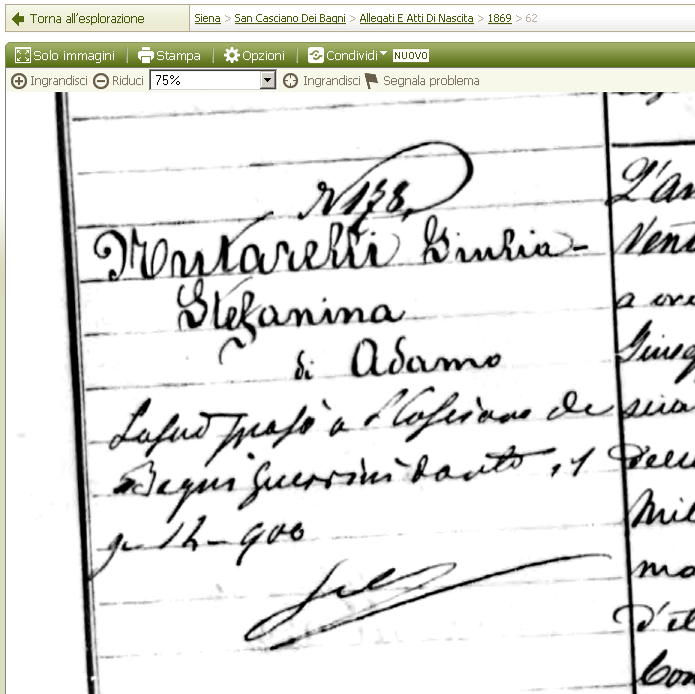 Torna all'esplorazione
Siena > San Casciano Dei Bagni > Allegati E Atti Di Nascita > 1869 > 62
Solo immagini | Stampa | Opzioni | Condividi NUOVO
Ingrandisci Riduci 75% Ingrandisci Segnala problema
N 178.
Mutarelli Giulia-
Stefanina
di Adamo
sposò a S Casciano de
Bagni Guerrini Santo, il
12-900
L'an
a ore